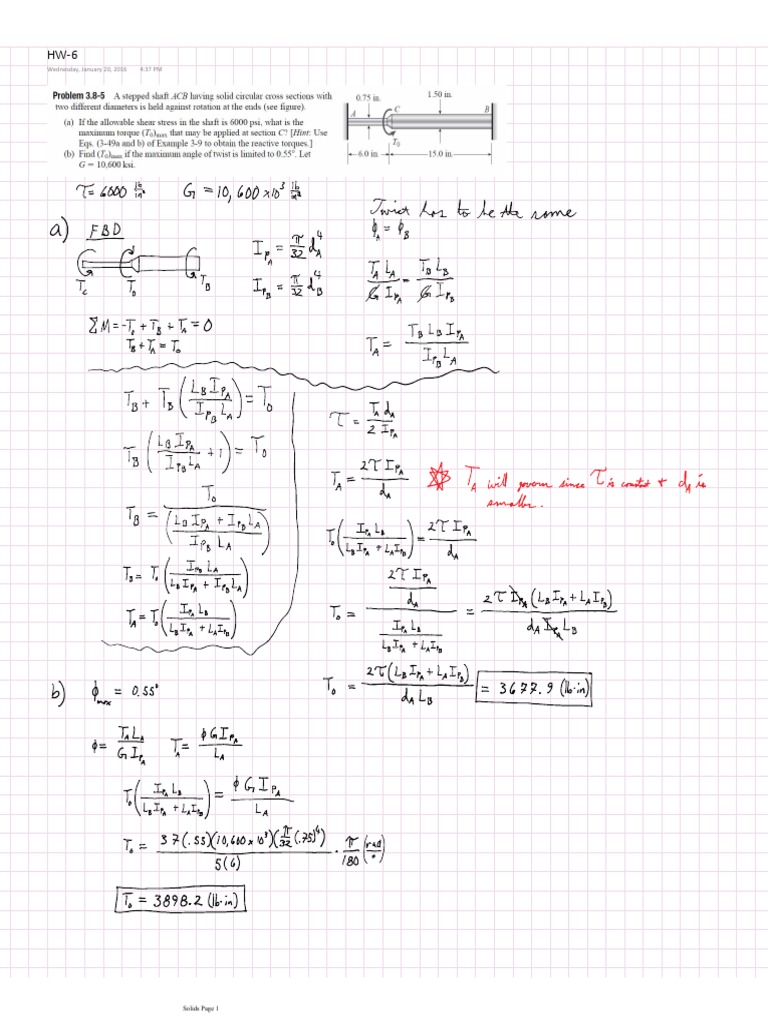 HW-6
Wednesday, January 20, 2016 4:37 PM
Problem 3.8-5 A stepped shaft ACB having solid circular cross sections with
two different diameters is held against rotation at the ends (see figure).
(a) If the allowable shear stress in the shaft is 6000 psi, what is the
maximum torque (T₀)max that may be applied at section C? [Hint: Use
Eqs. (3-49a and b) of Example 3-9 to obtain the reactive torques.]
(b) Find (T₀)max if the maximum angle of twist is limited to 0.55°. Let
G = 10,600 ksi.
0.75 in.
1.50 in.
A
C
B
T₀
6.0 in.
15.0 in.
τ = 6000 lb/in² G = 10,600 x10³ lb/in²
Twist has to be the same
ϕ_A = ϕ_B
a) FBD
T_c T_o T_B
I_PA = π/32 d_A⁴
I_PB = π/32 d_B⁴
T_A L_A / G I_PA = T_B L_B / G I_PB
ΣM = -T_o + T_B + T_A = 0
T_B + T_A = T_o
T_A = T_B L_B I_PA / I_PB L_A
T_B + T_B (L_B I_PA / I_PB L_A) = T_o
T_B (L_B I_PA / I_PB L_A + 1) = T_o
T_B = T_o / ((L_B I_PA + I_PB L_A) / I_PB L_A)
T_B = T_o (I_PB L_A / L_B I_PA + I_PB L_A)
T_A = T_o (I_PA L_B / L_B I_PA + L_A I_PB)
τ = T_A d_A / 2 I_PA
T_A = 2τ I_PA / d_A
T_A will govern since τ is constant + d_A is
smaller.
T_o (I_PA L_B / L_B I_PA + L_A I_PB) = 2τ I_PA / d_A
T_o = (2τ I_PA / d_A) / (I_PA L_B / L_B I_PA + L_A I_PB) = 2τ I_PA (L_B I_PA + L_A I_PB) / d_A I_PA L_B
T_o = 2τ (L_B I_PA + L_A I_PB) / d_A L_B = 3677.9 (lb·in)
b) ϕ_max = 0.55°
ϕ = T_A L_A / G I_PA T_A = ϕ G I_PA / L_A
T_o (I_PA L_B / L_B I_PA + L_A I_PB) = ϕ G I_PA / L_A
T_o = 37(.55)(10,600 x 10³)(π/32 (.75)⁴) / 5(6) · π/180 (rad/°)
T_o = 3898.2 (lb·in)
Solids Page 1